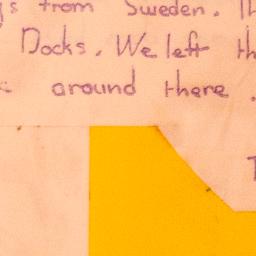 from Sweden.
Docks. We left
around there.